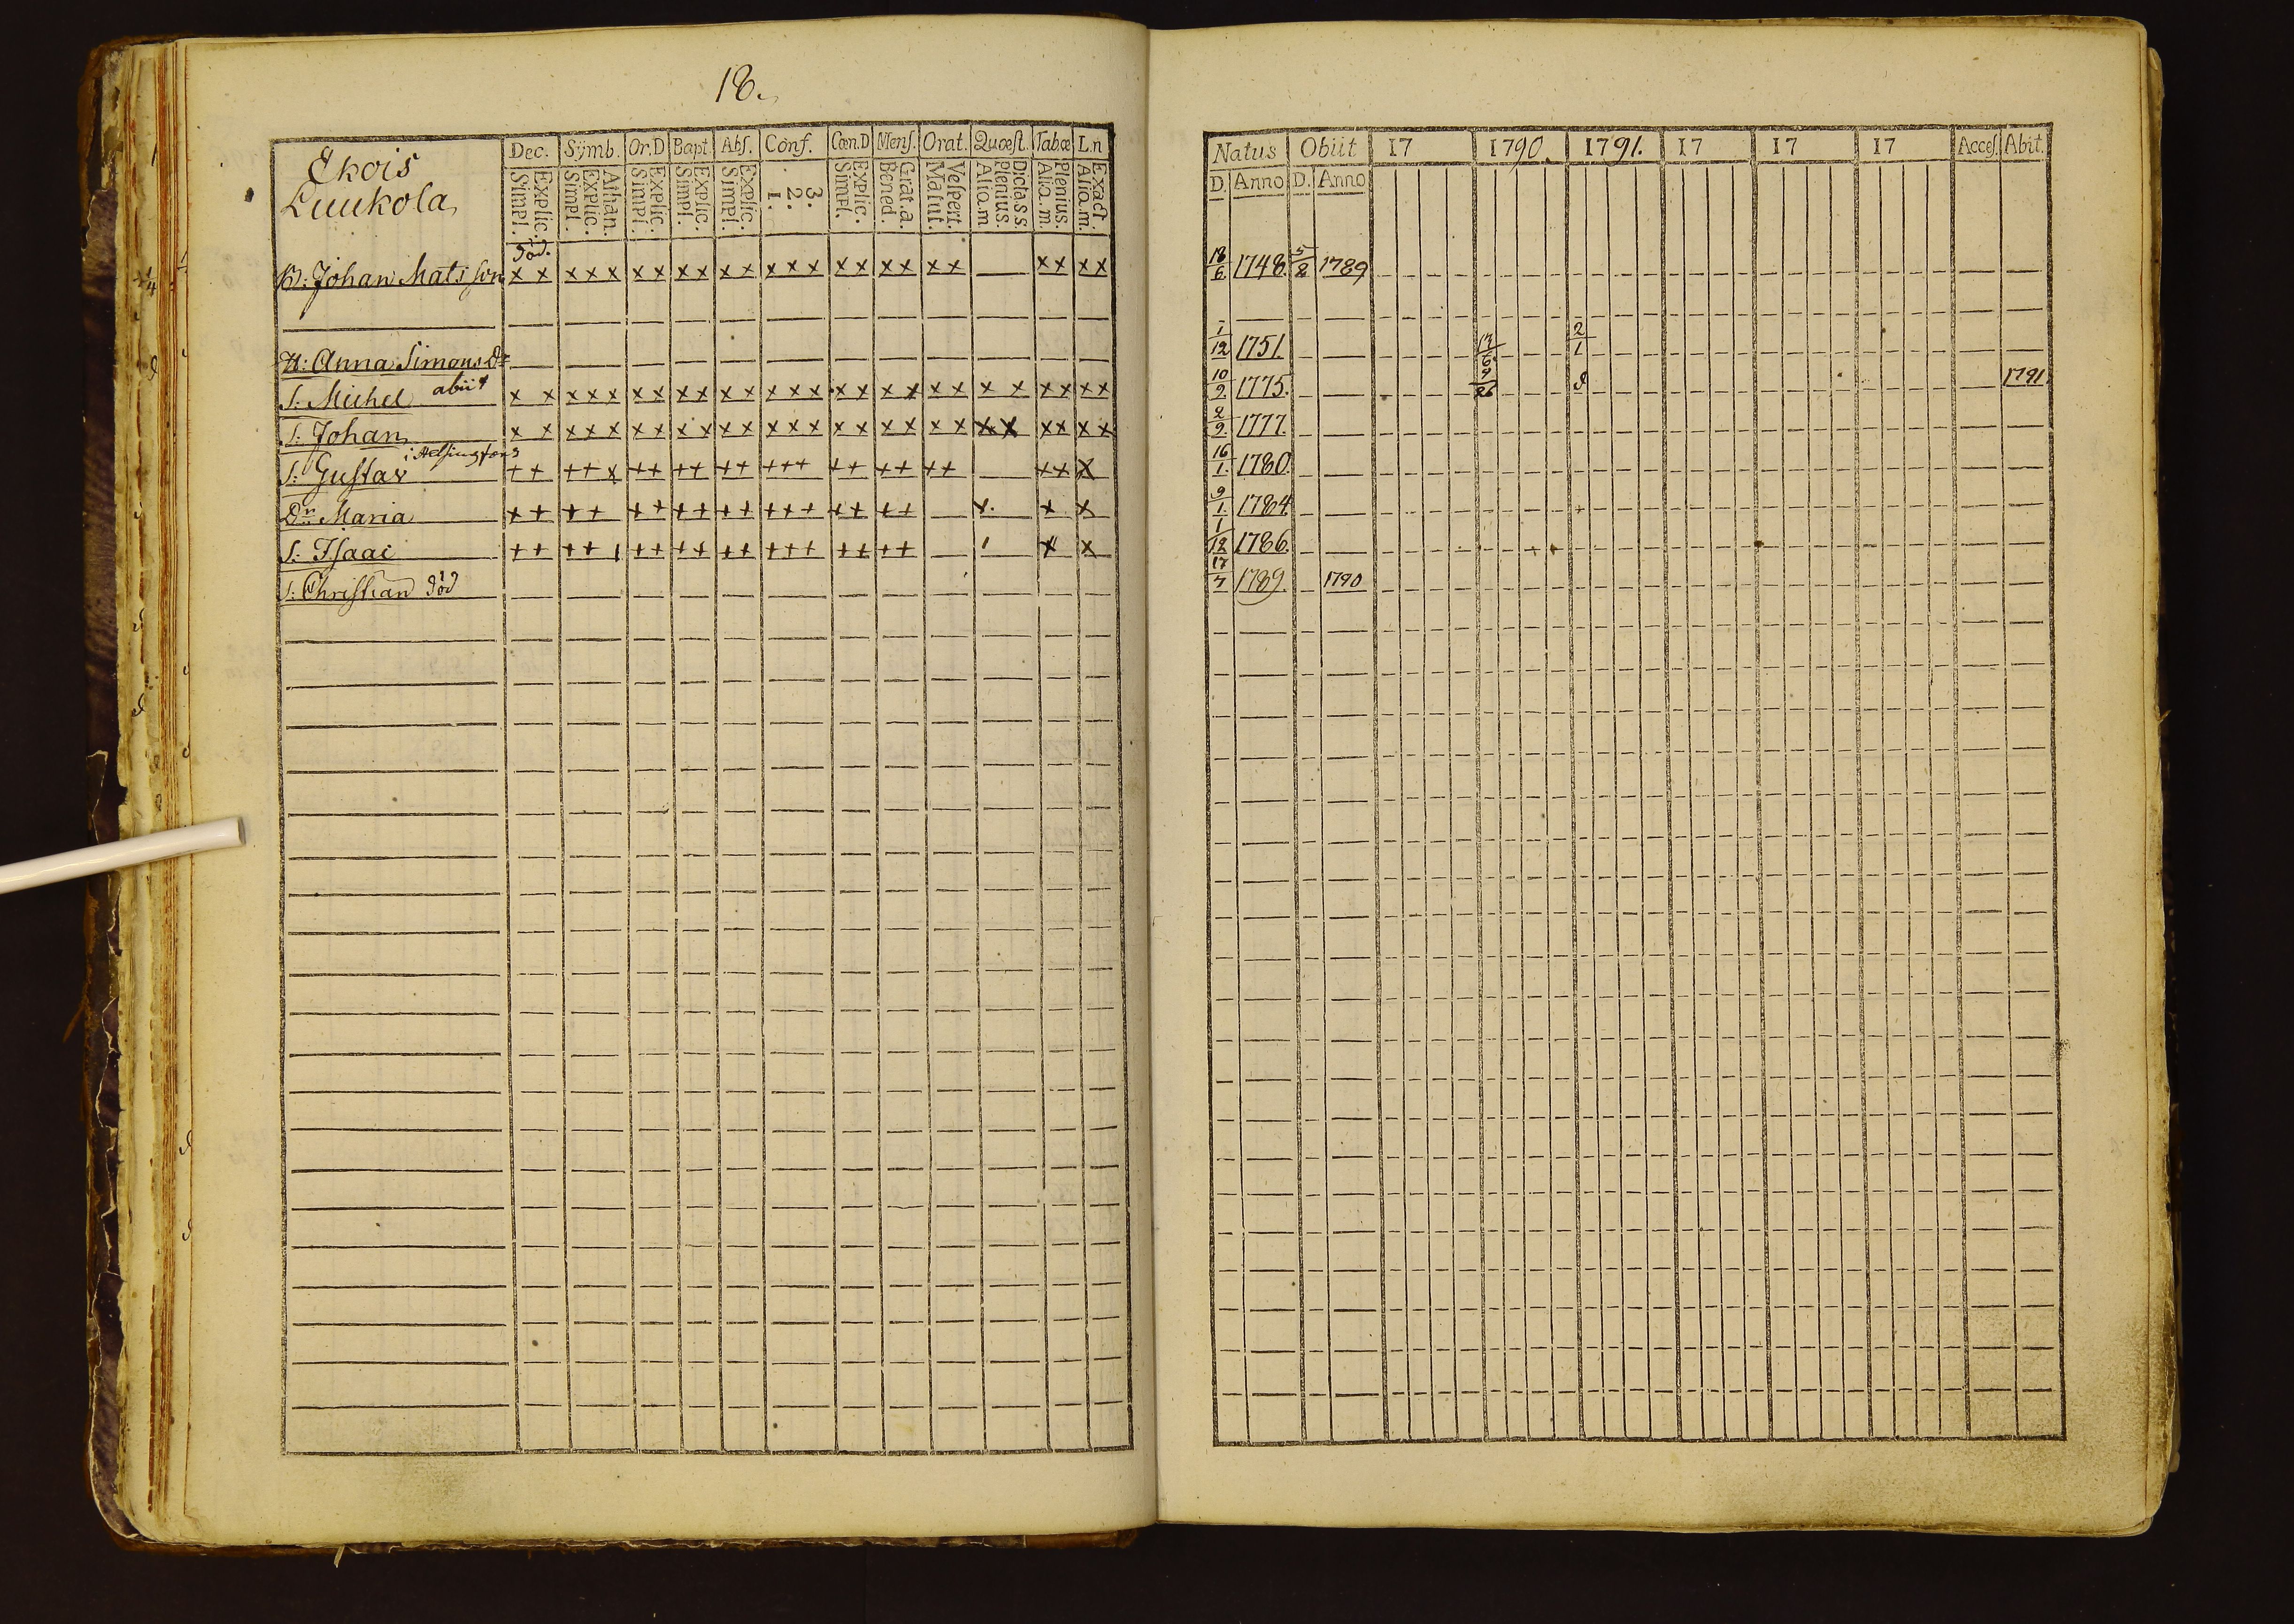 18.
Ekois
Luukola
Dec. Symb. Or.D Bapt. Abſ. Conf. Cœn.D Menſ. Orat. Quæſt. Tabæ L.n
Explic. Simpl. Athan. Explic. Simpl. Explic. Simpl. Explic. Simpl. Explic. Simpl. 3. 2. 1. Explic. Simpl. Grat.a. Bened. Veſpert. Matut. Dicta s.s. Plenius. Alia.m Plenius. Alia.m. Exact. Alia.m.
Natus Obiit 17 1790. 1791. 17 17 17 Acceſ. Abit.
D. Anno D. Anno
död.
B: Johan Matsſon x x x x x x x x x x x x x x x x x x x x x x x 18/6 1748. 5/2 1789
H: Anna Simonsdr 1/12 1751. 2/1
S: Michel abiit x x x x x x x x x x x x x x x x x x x x x x x x x 10/9. 1775. 1791.
S: Johan x x x x x x x x x x x x x x x x x x x x x x x x x 2/9. 1777.
i Helsingfors
S: Gustav + + + + x + + + + + + + + + + + + + + + x x x 16/1. 1780.
Dr Maria x + + + + + + + + + + + + + + + + x. x x 9/1. 1784.
S: Isaac + + + + 1 + + + + + + + + + + + + + x x 1/12 1786.
S: Christian död 17/7 1789. 1790